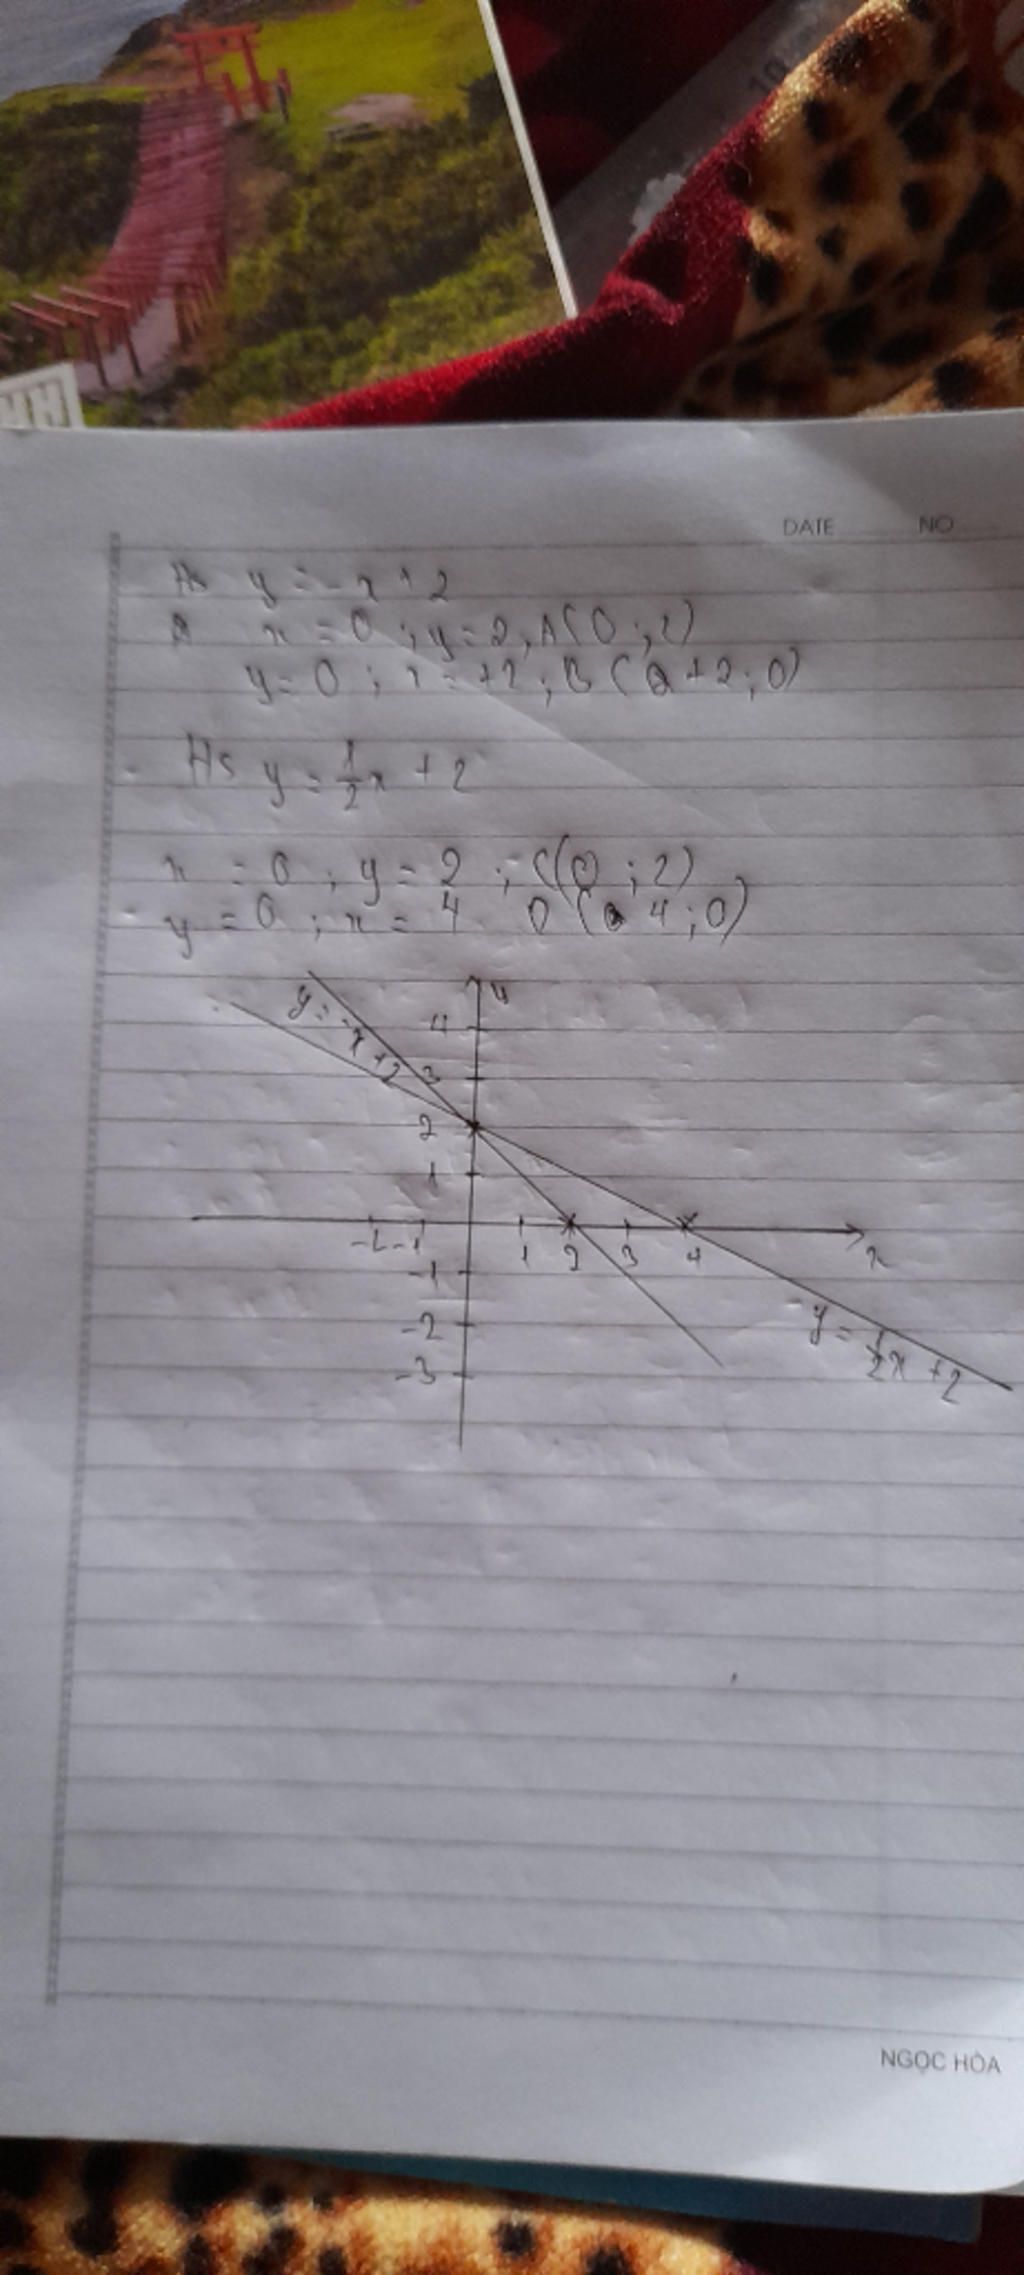 HH
DATE NO
Hs y = -x + 2
x = 0 ; y = 2, A(0 ; 2)
y = 0 ; x = +2 ; B ( +2 ; 0)
- Hs y = 1/2 x + 2
x = 0 ; y = 2 ; C(0 ; 2)
- y = 0 ; x = 4 D ( 4 ; 0)
y
y = -x + 2
4
3
2
1
-2 -1 1 2 3 4 x
-1
-2
-3
y = 1/2 x + 2
NGỌC HÒA